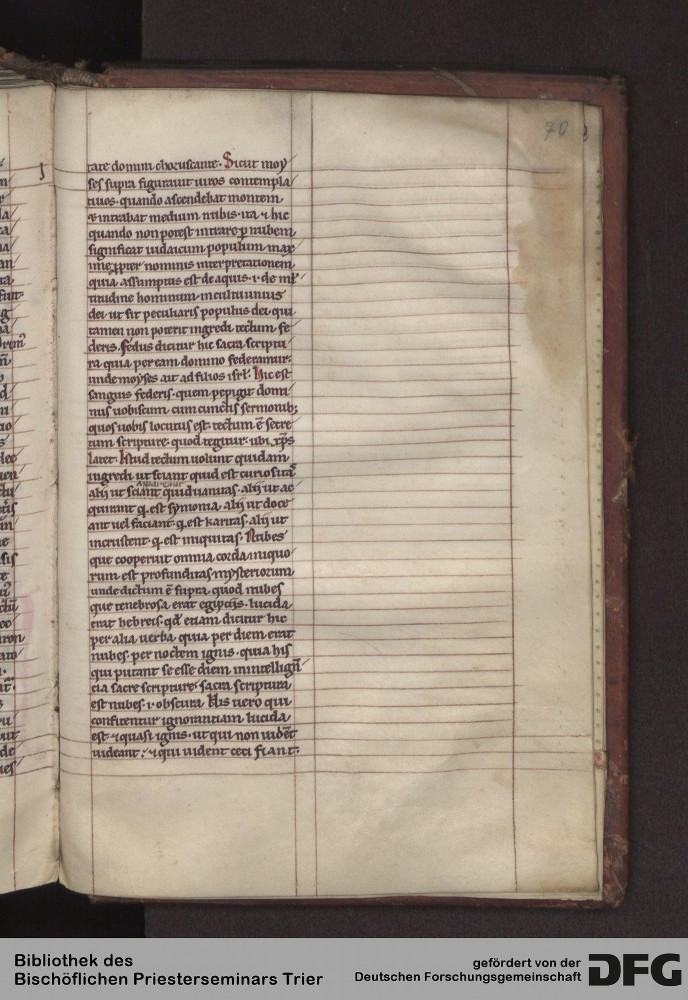 70
tate domini choruscante. Sicut moy
ses supra figurauit uiros contempla
tiuos. quando ascendebat montem
⁊ intrabat medium nubis. ita ⁊ hic
quando non potest intrare ꝑ nubem
significat iudaicum populum max
ime ꝓpter nominis interpretationem
quia assumptus est de aquis. i. de ml̅
titudine hominum in cultu unius
dei. ut sit peculiaris populus dei. qui
tamen non poterit ingredi tectum fe
deris. Fedus dicitur hic sacra scriptu
ra quia per eam domino federamur.
unde moyses ait ad filios isrl̅. Hic est
sanguis federis. quem pepigit domi
nus uobiscum. cum cunctis sermonib;
quos uobis locutus est. tectum e̅ secre
tum scripture. quod tegitur. ubi xp̅s
latet. Istud tectum uolunt quidam
ingredi ut sciant quid est curiosita̅
alij ut sciant quid uanitas. alij ut ac
quirant q. est symonia. alij ut doce
ant uel faciant. q. est karitas. alij ut
incrustent. q. est iniquitas. Nubes
que cooperuit omnia corda iniquo
rum est profunditas mysteriorum
unde dictum e̅ supra. quod nubes
que tenebrosa erat egiptijs. lucida
erat hebreis. qd̅ etiam dicitur hic
per alia uerba. quia per diem erat
nubes. per noctem ignis. quia his
qui putant se esse diem in intellign̅
cia sacre scripture. sacra scriptura
est nubes. i. obscura. His uero qui
confitentur ignorantiam lucida
est. ⁊ quasi ignis. ut qui non uide̅t
uideant. ⁊ qui uident ceci fiant.
Bibliothek des
Bischöflichen Priesterseminars Trier
gefördert von der
Deutschen Forschungsgemeinschaft
DFG